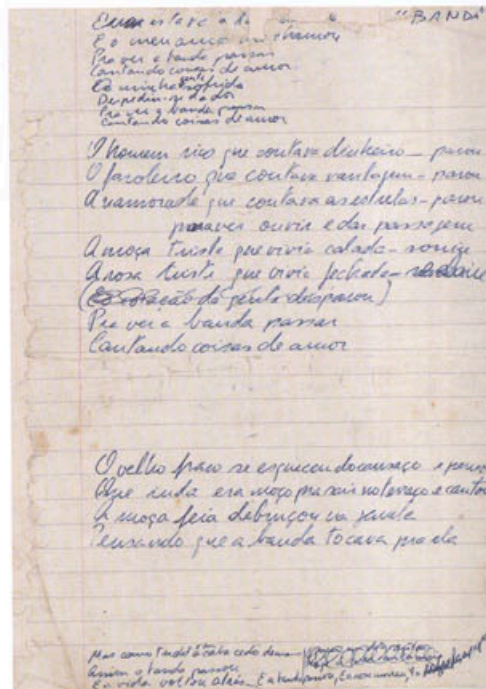 "BANDA"
Eu estava à
E o meu amor me chamou
Pra ver a banda passar
Cantando coisas de amor
E a minha gente sofrida
Despediu-se da dor
Pra ver a banda passar
Cantando coisas de amor
O homem rico que contava dinheiro - parou
O faroleiro que contava vantagem - parou
A namorada que contava as estrelas - parou
para ver ouvir e dar passagem
A moça triste que vivia calada - sorriu
A rosa triste que vivia fechada -
(E o coração da gente disparou)
Pra ver a banda passar
Cantando coisas de amor
O velho fraco se esqueceu do cansaço e pensou
Que inda era moço pra sair no terraço e cantou
A moça feia debruçou na janela
Pensando que a banda tocava pra ela
Mas como tudo acaba cedo
Assim a banda passou
E a vida voltou atrás